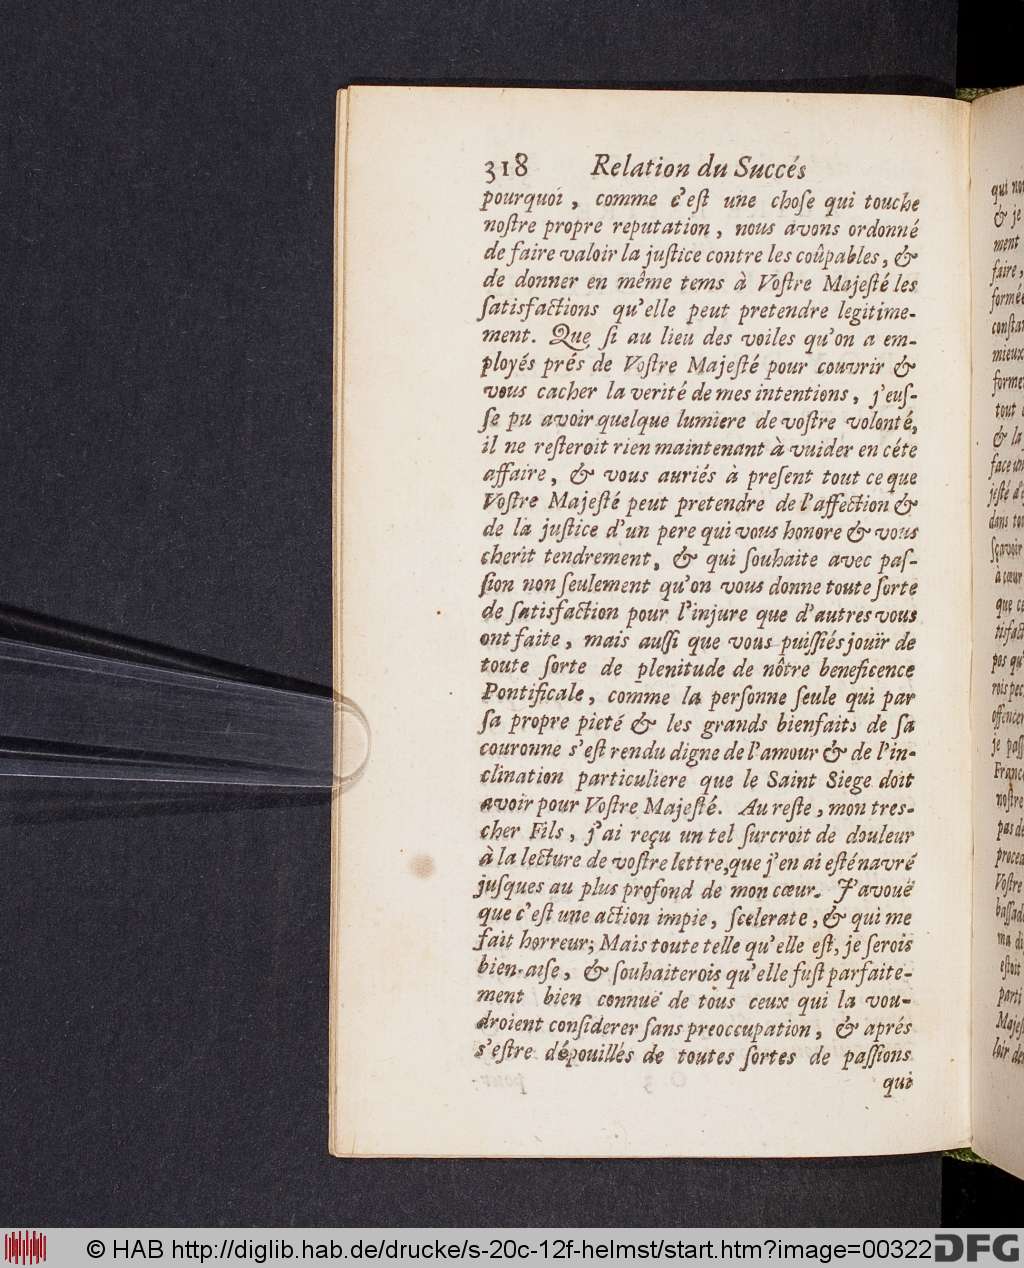 318 Relation du Succés
pourquoi, comme c'eſt une choſe qui touche
noſtre propre reputation, nous avons ordonné
de faire valoir la juſtice contre les coûpables, &
de donner en même tems à Voſtre Majeſté les
ſatisfactions qu'elle peut pretendre legitime-
ment. Que ſi au lieu des voiles qu'on a em-
ployés prés de Voſtre Majeſté pour couvrir &
vous cacher la verité de mes intentions, j'euſ-
ſe pu avoir quelque lumiere de voſtre volonté,
il ne reſteroit rien maintenant à vuider en céte
affaire, & vous auriés à preſent tout ce que
Voſtre Majeſté peut pretendre de l'affection &
de la juſtice d'un pere qui vous honore & vous
cherit tendrement, & qui ſouhaite avec paſ-
ſion non ſeulement qu'on vous donne toute ſorte
de ſatisfaction pour l'injure que d'autres vous
ont faite, mais auſſi que vous puiſſiés jouïr de
toute ſorte de plenitude de nôtre beneficence
Pontificale, comme la perſonne ſeule qui par
ſa propre pieté & les grands bienfaits de ſa
couronne s'eſt rendu digne de l'amour & de l'in-
clination particuliere que le Saint Siege doit
avoir pour Voſtre Majeſté. Au reſte, mon tres-
cher Fils, j'ai reçu un tel ſurcroit de douleur
à la lecture de voſtre lettre, que j'en ai eſté navré
juſques au plus profond de mon cœur. J'avouë
que c'eſt une action impie, ſcelerate, & qui me
fait horreur; Mais toute telle qu'elle eſt, je ſerois
bien-aiſe, & ſouhaiterois qu'elle fuſt parfaite-
ment bien connuë de tous ceux qui la vou-
droient conſiderer ſans preoccupation, & aprés
s'eſtre dépouillés de toutes ſortes de paſſions
qui
qui
& je
ment
faire,
mieux
tout
& la
dans
à cœur
que
je
pas de
Voſtre
ma
eſtoit
parti
© HAB http://diglib.hab.de/drucke/s-20c-12f-helmst/start.htm?image=00322
DFG